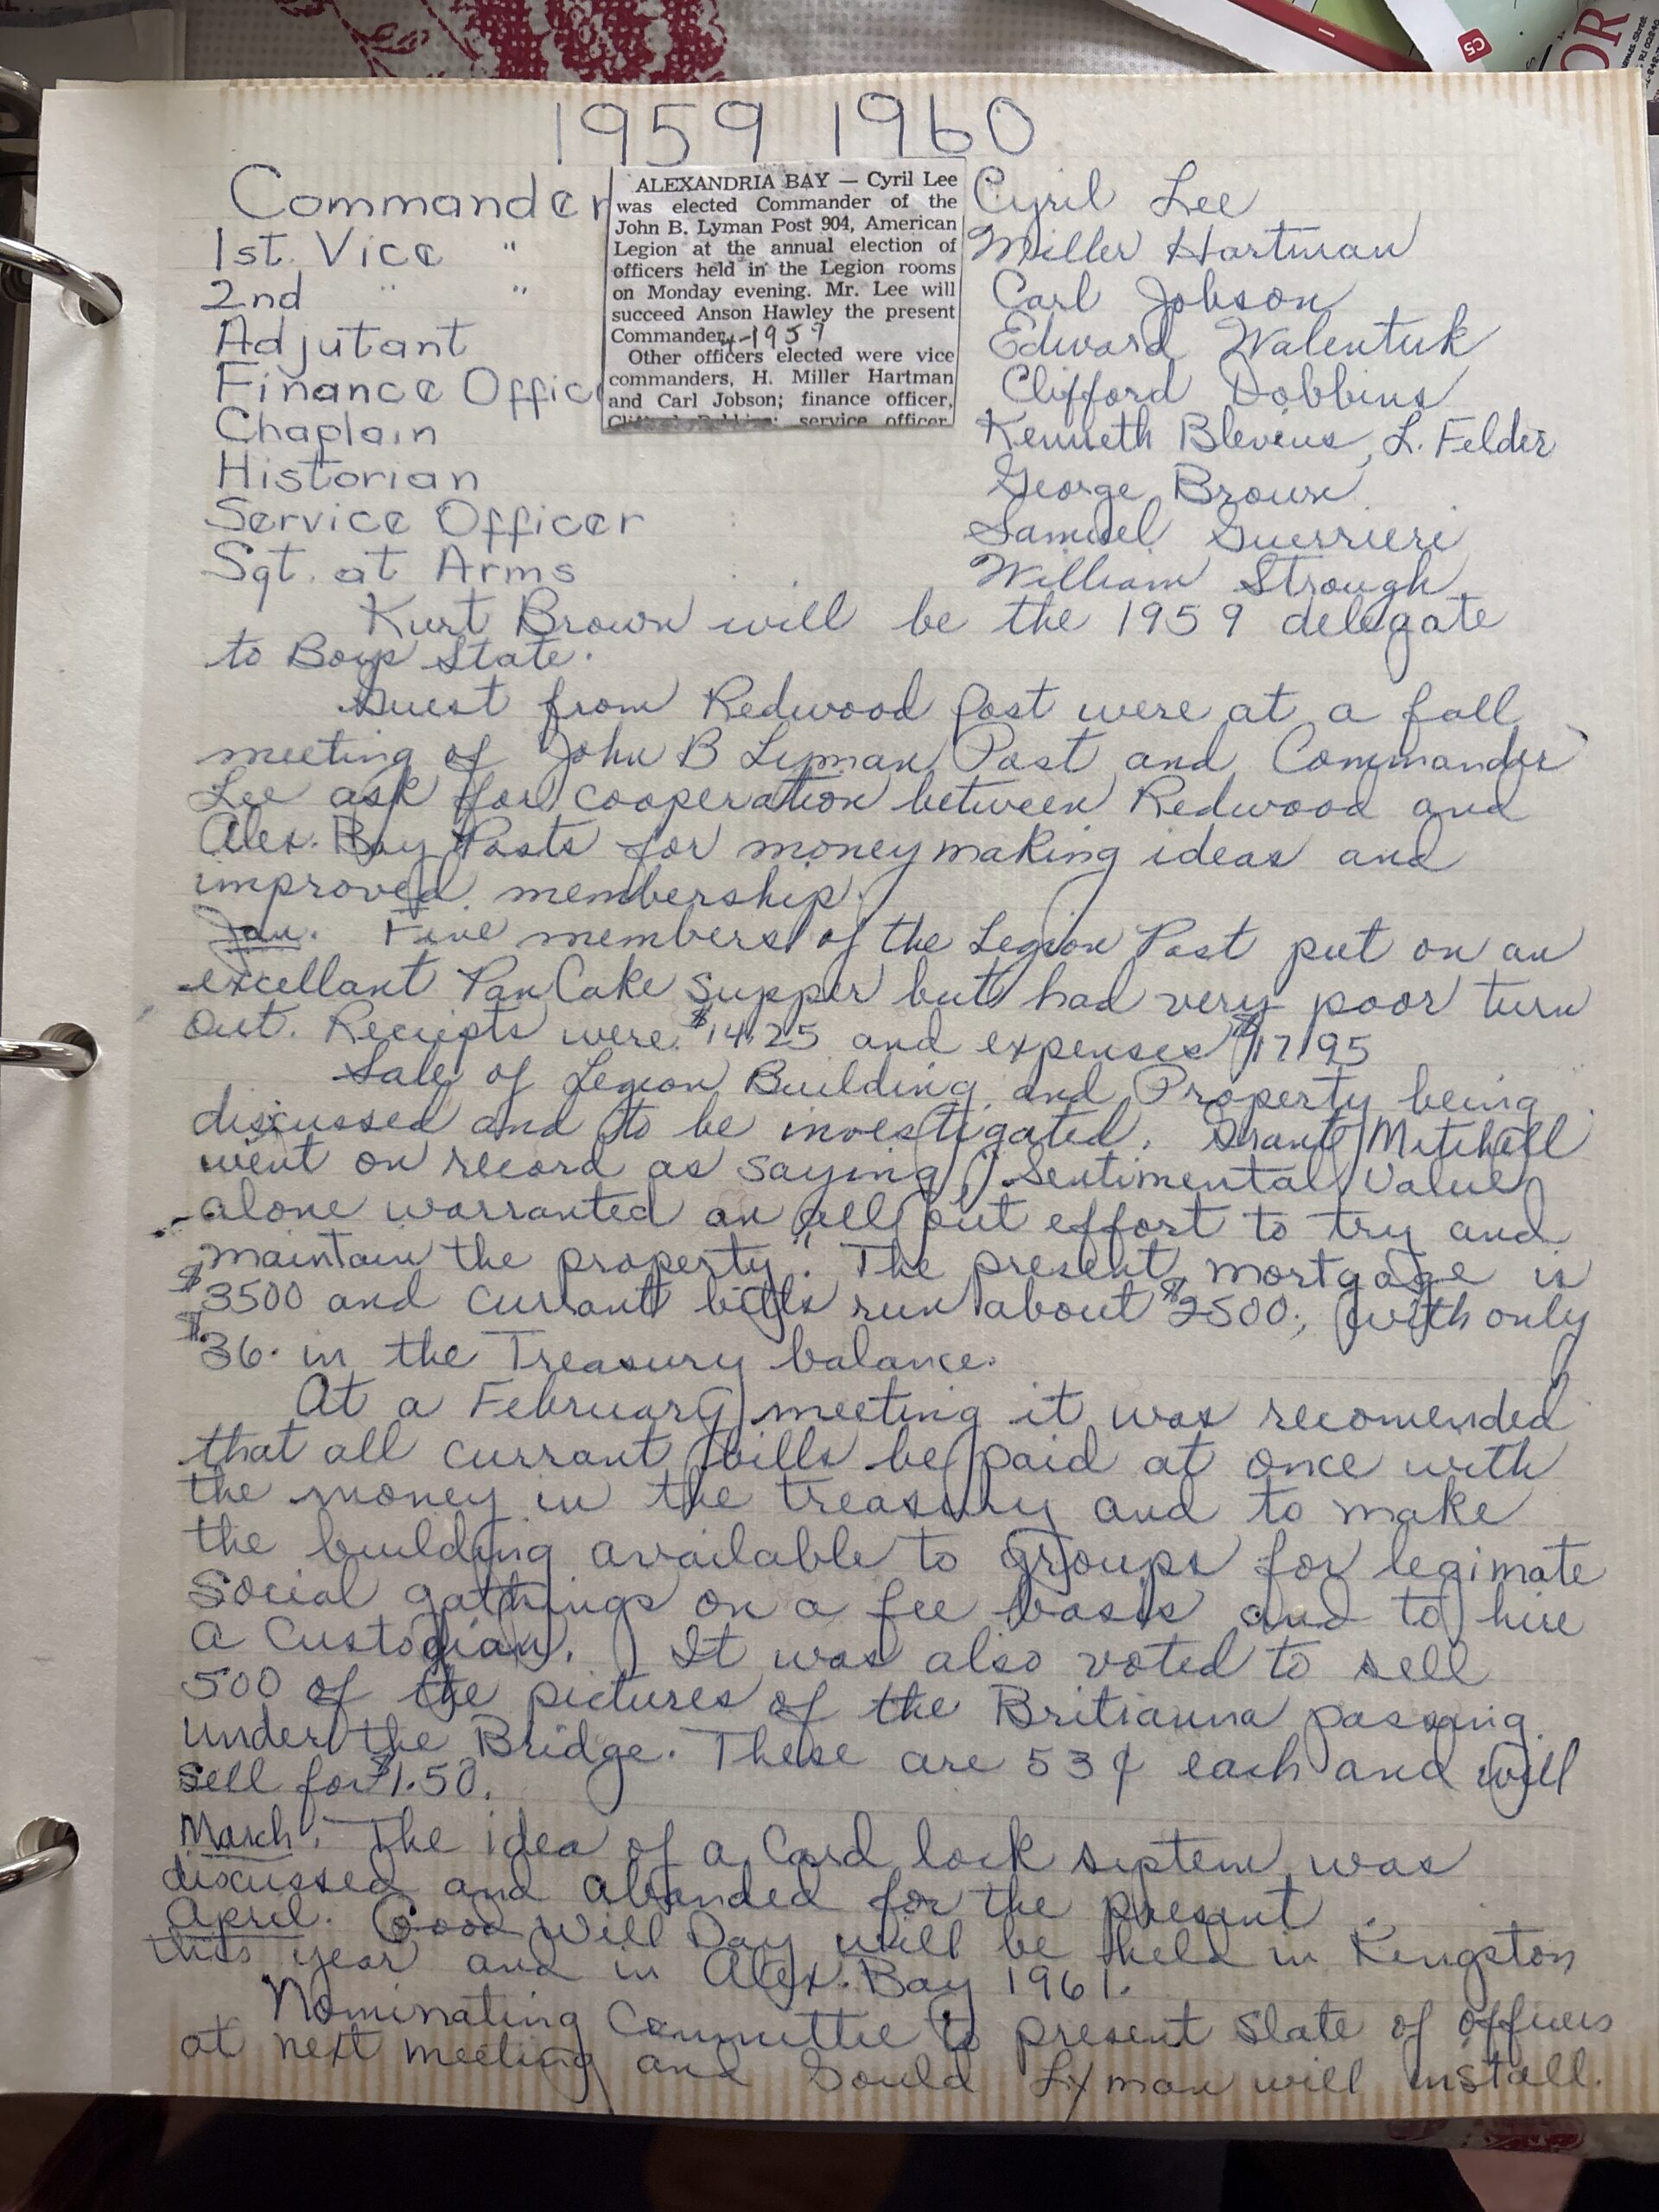 1959 1960
Commander Cyril Lee
1st. Vice " Miller Hartman
2nd " " Carl Jobson
Adjutant Edward Walentuk
Finance Offic Clifford Dobbins
Chaplain Kenneth Blevins, L. Felder
Historian George Brown
Service Officer Samuel Guerrieri
Sgt. at Arms William Strough
ALEXANDRIA BAY — Cyril Lee
was elected Commander of the
John B. Lyman Post 904, American
Legion at the annual election of
officers held in the Legion rooms
on Monday evening. Mr. Lee will
succeed Anson Hawley the present
Commander. 4-1959
Other officers elected were vice
commanders, H. Miller Hartman
and Carl Jobson; finance officer,
Clifford Dobbins; service officer,
Kurt Brown will be the 1959 delegate
to Boys State.
Guest from Redwood Post were at a fall
meeting of John B Lyman Post and Commander
Lee ask for cooperation between Redwood and
Alex. Bay Posts for money making ideas and
improved membership.
Jan. Five members of the Legion Post put on an
excellant PanCake Supper but had very poor turn
out. Receipts were $14.25 and expenses $17.95
Sale of Legion Building and Property being
discussed and to be investigated. Grant Mitchell
went on record as saying, "Sentimental Value
alone warranted an all out effort to try and
maintain the property". The present mortgage is
$3500 and currant bills run about $2500., with only
$36. in the Treasury balance.
At a February meeting it was recomended
that all currant bills be paid at once with
the money in the treasury and to make
the building available to groups for legimate
Social gathings on a fee basis and to hire
a Custodian. It was also voted to sell
500 of the pictures of the Britianna passing
under the Bridge. These are 53¢ each and will
sell for $1.50.
March. The idea of a Card lock system was
discussed and abanded for the present.
April. Good Will Day will be held in Kingston
this year and in Alex. Bay 1961.
Nominating Committee to present Slate of officers
at next meeting and Gould Lyman will install.
C5
OR